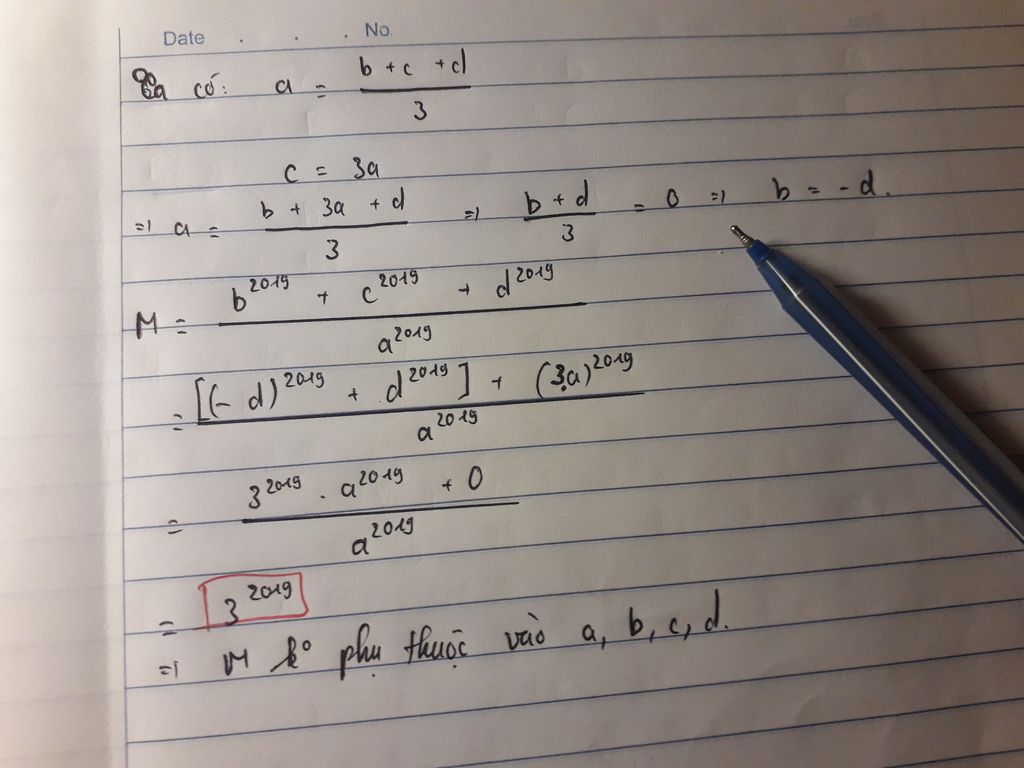 Date . . . No.
Ta có: a = (b + c + d)/3
c = 3a
=> a = (b + 3a + d)/3 => (b + d)/3 = 0 => b = -d.
M = (b^2019 + c^2019 + d^2019)/a^2019
= ([(-d)^2019 + d^2019] + (3a)^2019)/a^2019
= (3^2019 . a^2019 + 0)/a^2019
= 3^2019
=> M ko phụ thuộc vào a, b, c, d.